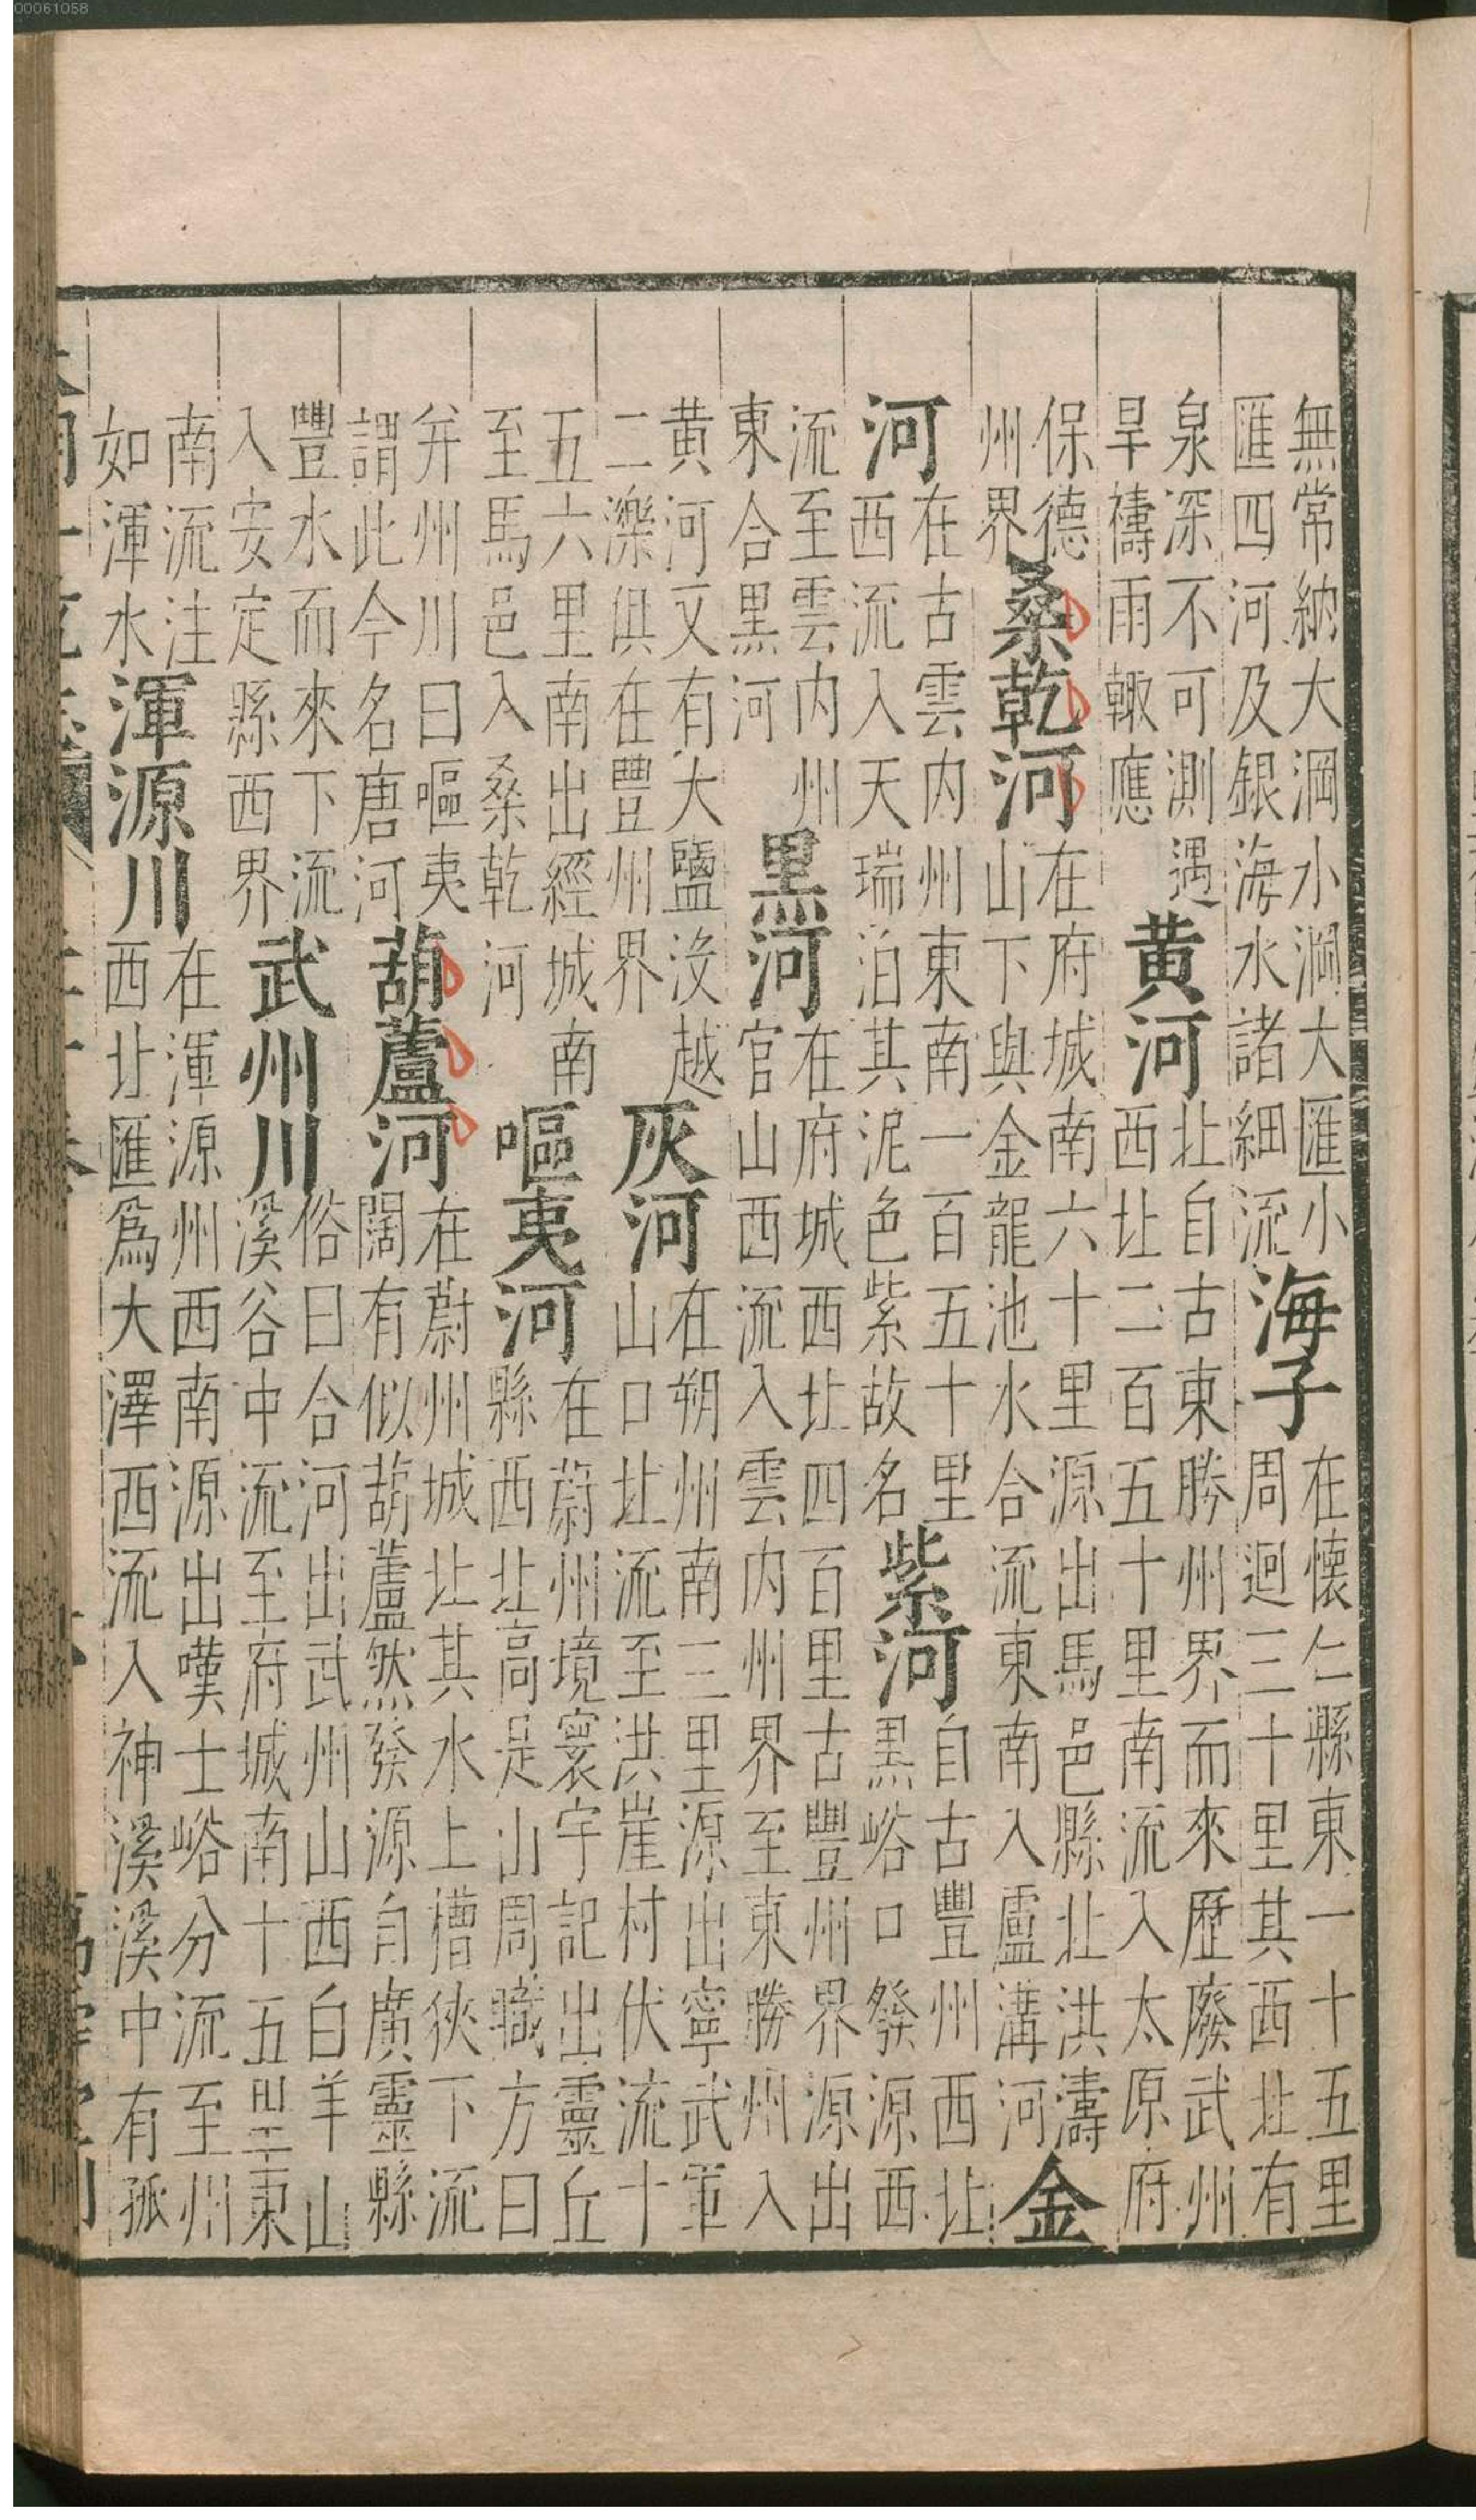 無常納大澗小澗大匯小
匯四河及銀海水諸細流
海子
在懷仁縣東一十五里
周迴三十里其西北有
泉深不可測遇
旱禱雨輙應
黄河
北自古東勝州界而來歷廢武州
西北二百五十里南流入太原府
保德
州界
桑乾河
在府城南六十里源出馬邑縣北洪濤
山下與金龍池水合流東南入盧溝河
金
河
在古雲内州東南一百五十里
西流入天瑞泊其泥色紫故名
紫河
自古豐州西北
黑峪口發源西
流至雲内州
東合黑河
黑河
在府城西北四百里古豐州界源出
官山西流入雲内州界至東勝州入
黄河又有大鹽没越
二濼俱在豐州界
灰河
在朔州南三里源出寧武軍
山口北流至洪崖村伏流十
五六里南出經城南
至馬邑入桑乾河
嘔夷河
在蔚州境寰宇記出靈丘
縣西北高是山周職方曰
并州川曰嘔夷
謂此今名唐河
葫蘆河
在蔚州城北其水上槽狹下流
闊有似葫蘆然發源自廣靈縣
豐水而來下流
入安定縣西界
武州川
俗曰合河出武州山西白羊山
溪谷中流至府城南十五里東
南流注
如渾水
渾源川
在渾源州西南源出嘆士峪分流至州
西北匯爲大澤西流入神溪溪中有孤
00061058